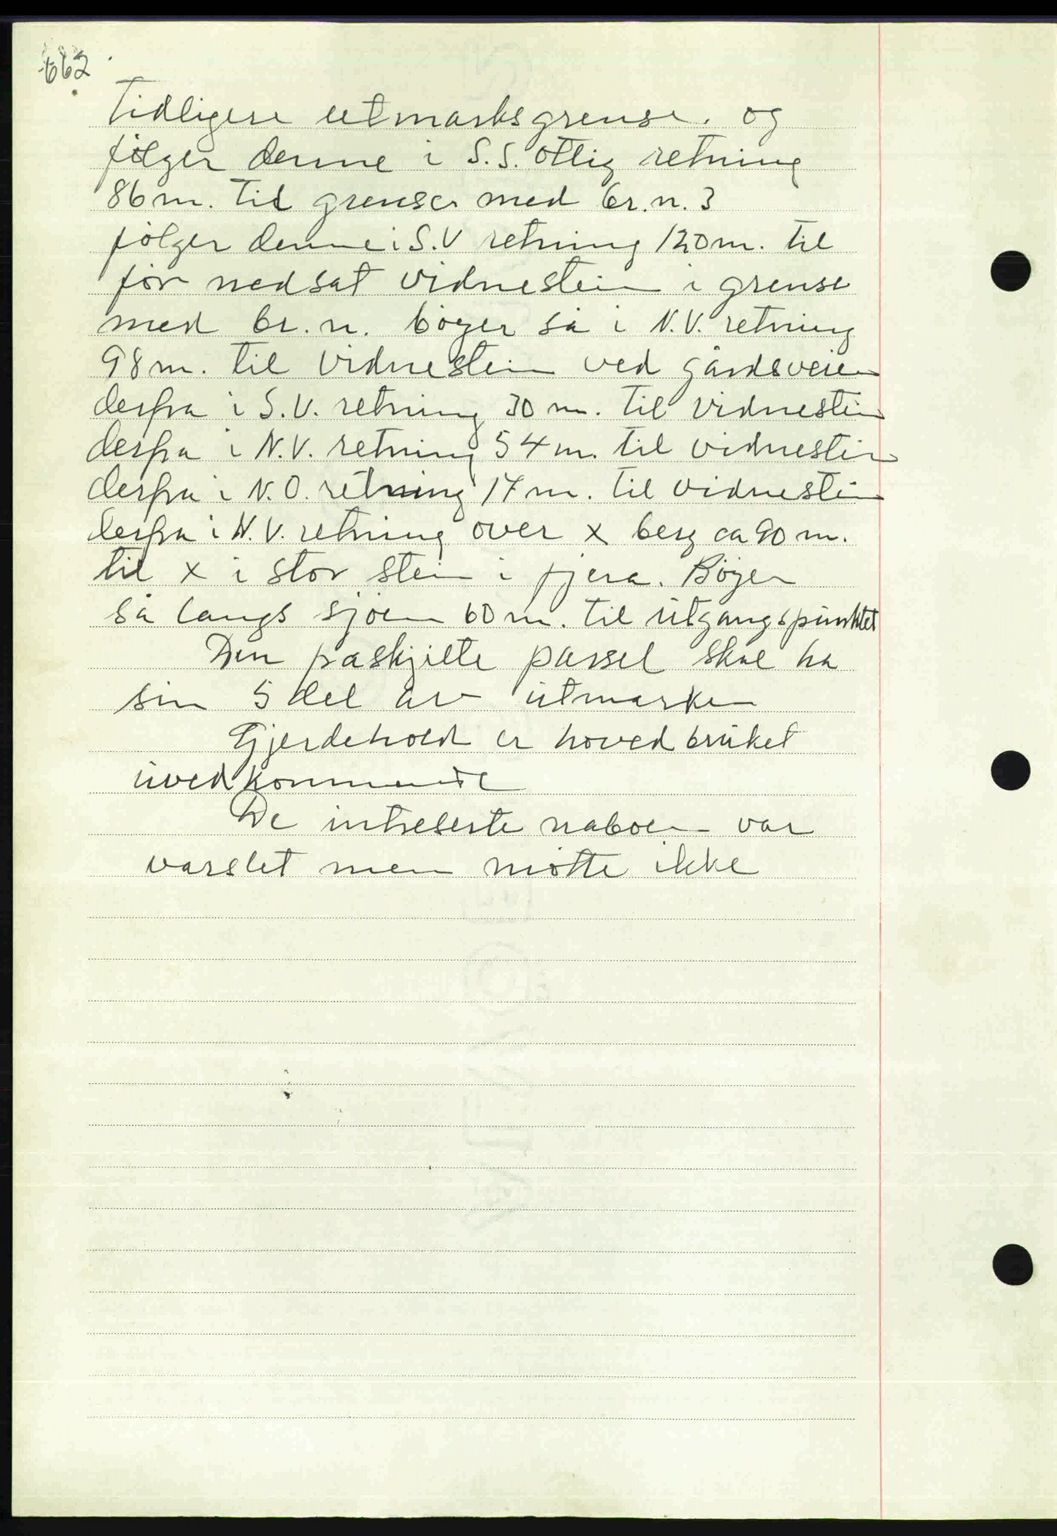 662
tidligere utmarksgrense. og
følger denne i S.S. ottlig retning
86 m. til grenser med br.n. 3
følger denne i S.V retning 120 m. til
før nedsat vidnestein i grense
med br. n. bøyer så i N.V. retning
98 m. til vidnestein ved gårdsveien
derfra i S.V. retning 30 m. til vidnestein
derfra i N.V. retning 54 m. til vidnestein
derfra i N.O. retning 14 m. til vidnestein
derfra i N.V. retning over x berg ca 90 m.
til x i stor stein i fjera. Bøyer
så langs sjøen 60 m. til utgangspunktet
Den fraskjilte parsel skal ha
sin 5 del av utmarken
Gjerdehold er hovedbruket
uvedkommende
De intreserte naboer var
varslet men møtte ikke